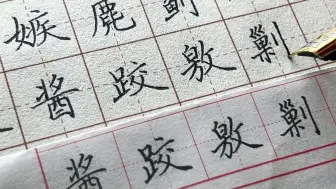 嫉麂
酱跤敫剿
酱跤敫剿